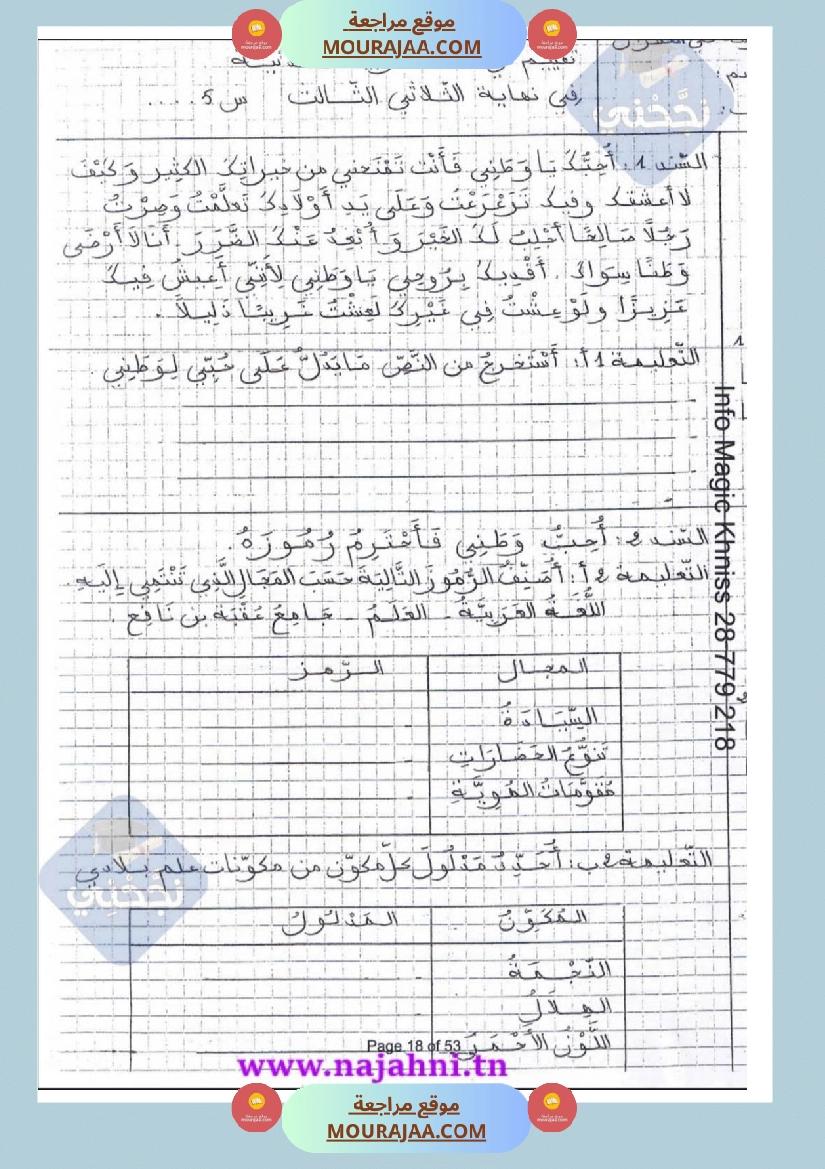 موقع مراجعة
MOURAJAA.COM
في نهاية الثّلاثي الثّالث س 5 ....
نجّحني
السّند 1: أُحِبُّكَ يَا وَطَنِي فَأَنْتَ تَمْنَحُنِي من خيراتِكَ الكثِير وَكَيْفَ
لا أعشقك وفيك تَرَعْرَعْتُ وَعَلَى يَدِ أَوْلَادِكَ تَعَلَّمْتُ وَصِرْتُ
رَجُلًا صَالِحًا أَجْلِبُ لَكَ الخَيْرَ وَ أُبْعِدُ عَنْكَ الضَّرَرَ. أَنَا لَا أَرْضَى
وَطَنًا سِوَاكَ. أَفْدِيكَ بِرُوحِي يَا وَطَنِي لِأَنَّنِي أَعِيشُ فِيكَ
عَزِيزًا ولَوْ عِشْتُ فِي غَيْرِكَ لَعِشْتُ غَرِيبًا ذَلِيلًا.
التّعليمة 1 أ: أَسْتَخرِجُ من النّصّ مَا يَدُلُّ عَلَى حُبِّي لِوَطَنِي.
السّند 2: أُحِبُّ وَطَنِي فَأَحْتَرِمُ رُمُوزَهُ.
التّعليمة 2 أ: أُصَنِّفُ الرّمُوزَ التَّالِيَةَ حَسَبَ المَجَالِ الَّذِي تَنْتَمِي إِلَيْهِ.
اللُّغَةُ العَرَبِيَّةُ - العَلَمُ - جَامِعُ عُقْبَة بن نَافِع.
المجال الرّمز
السِّيَادَةُ -
تَنَوُّعُ الحَضَارَاتِ -
مُقَوِّمَاتُ الهُوِيَّةِ -
التّعليمة 2 ب: أُحَدِّدُ مَدْلُولَ كلّ مكوّن من مكوّنات علم بلادي
المُكَوِّنُ المَدْلُولُ
النّجْمَةُ -
الهِلَالُ -
اللَّوْنُ الأَحْمَرُ
Info Magic Khniss 28 779 218
نجّحني
Page 18 of 53
www.najahni.tn
موقع مراجعة
MOURAJAA.COM